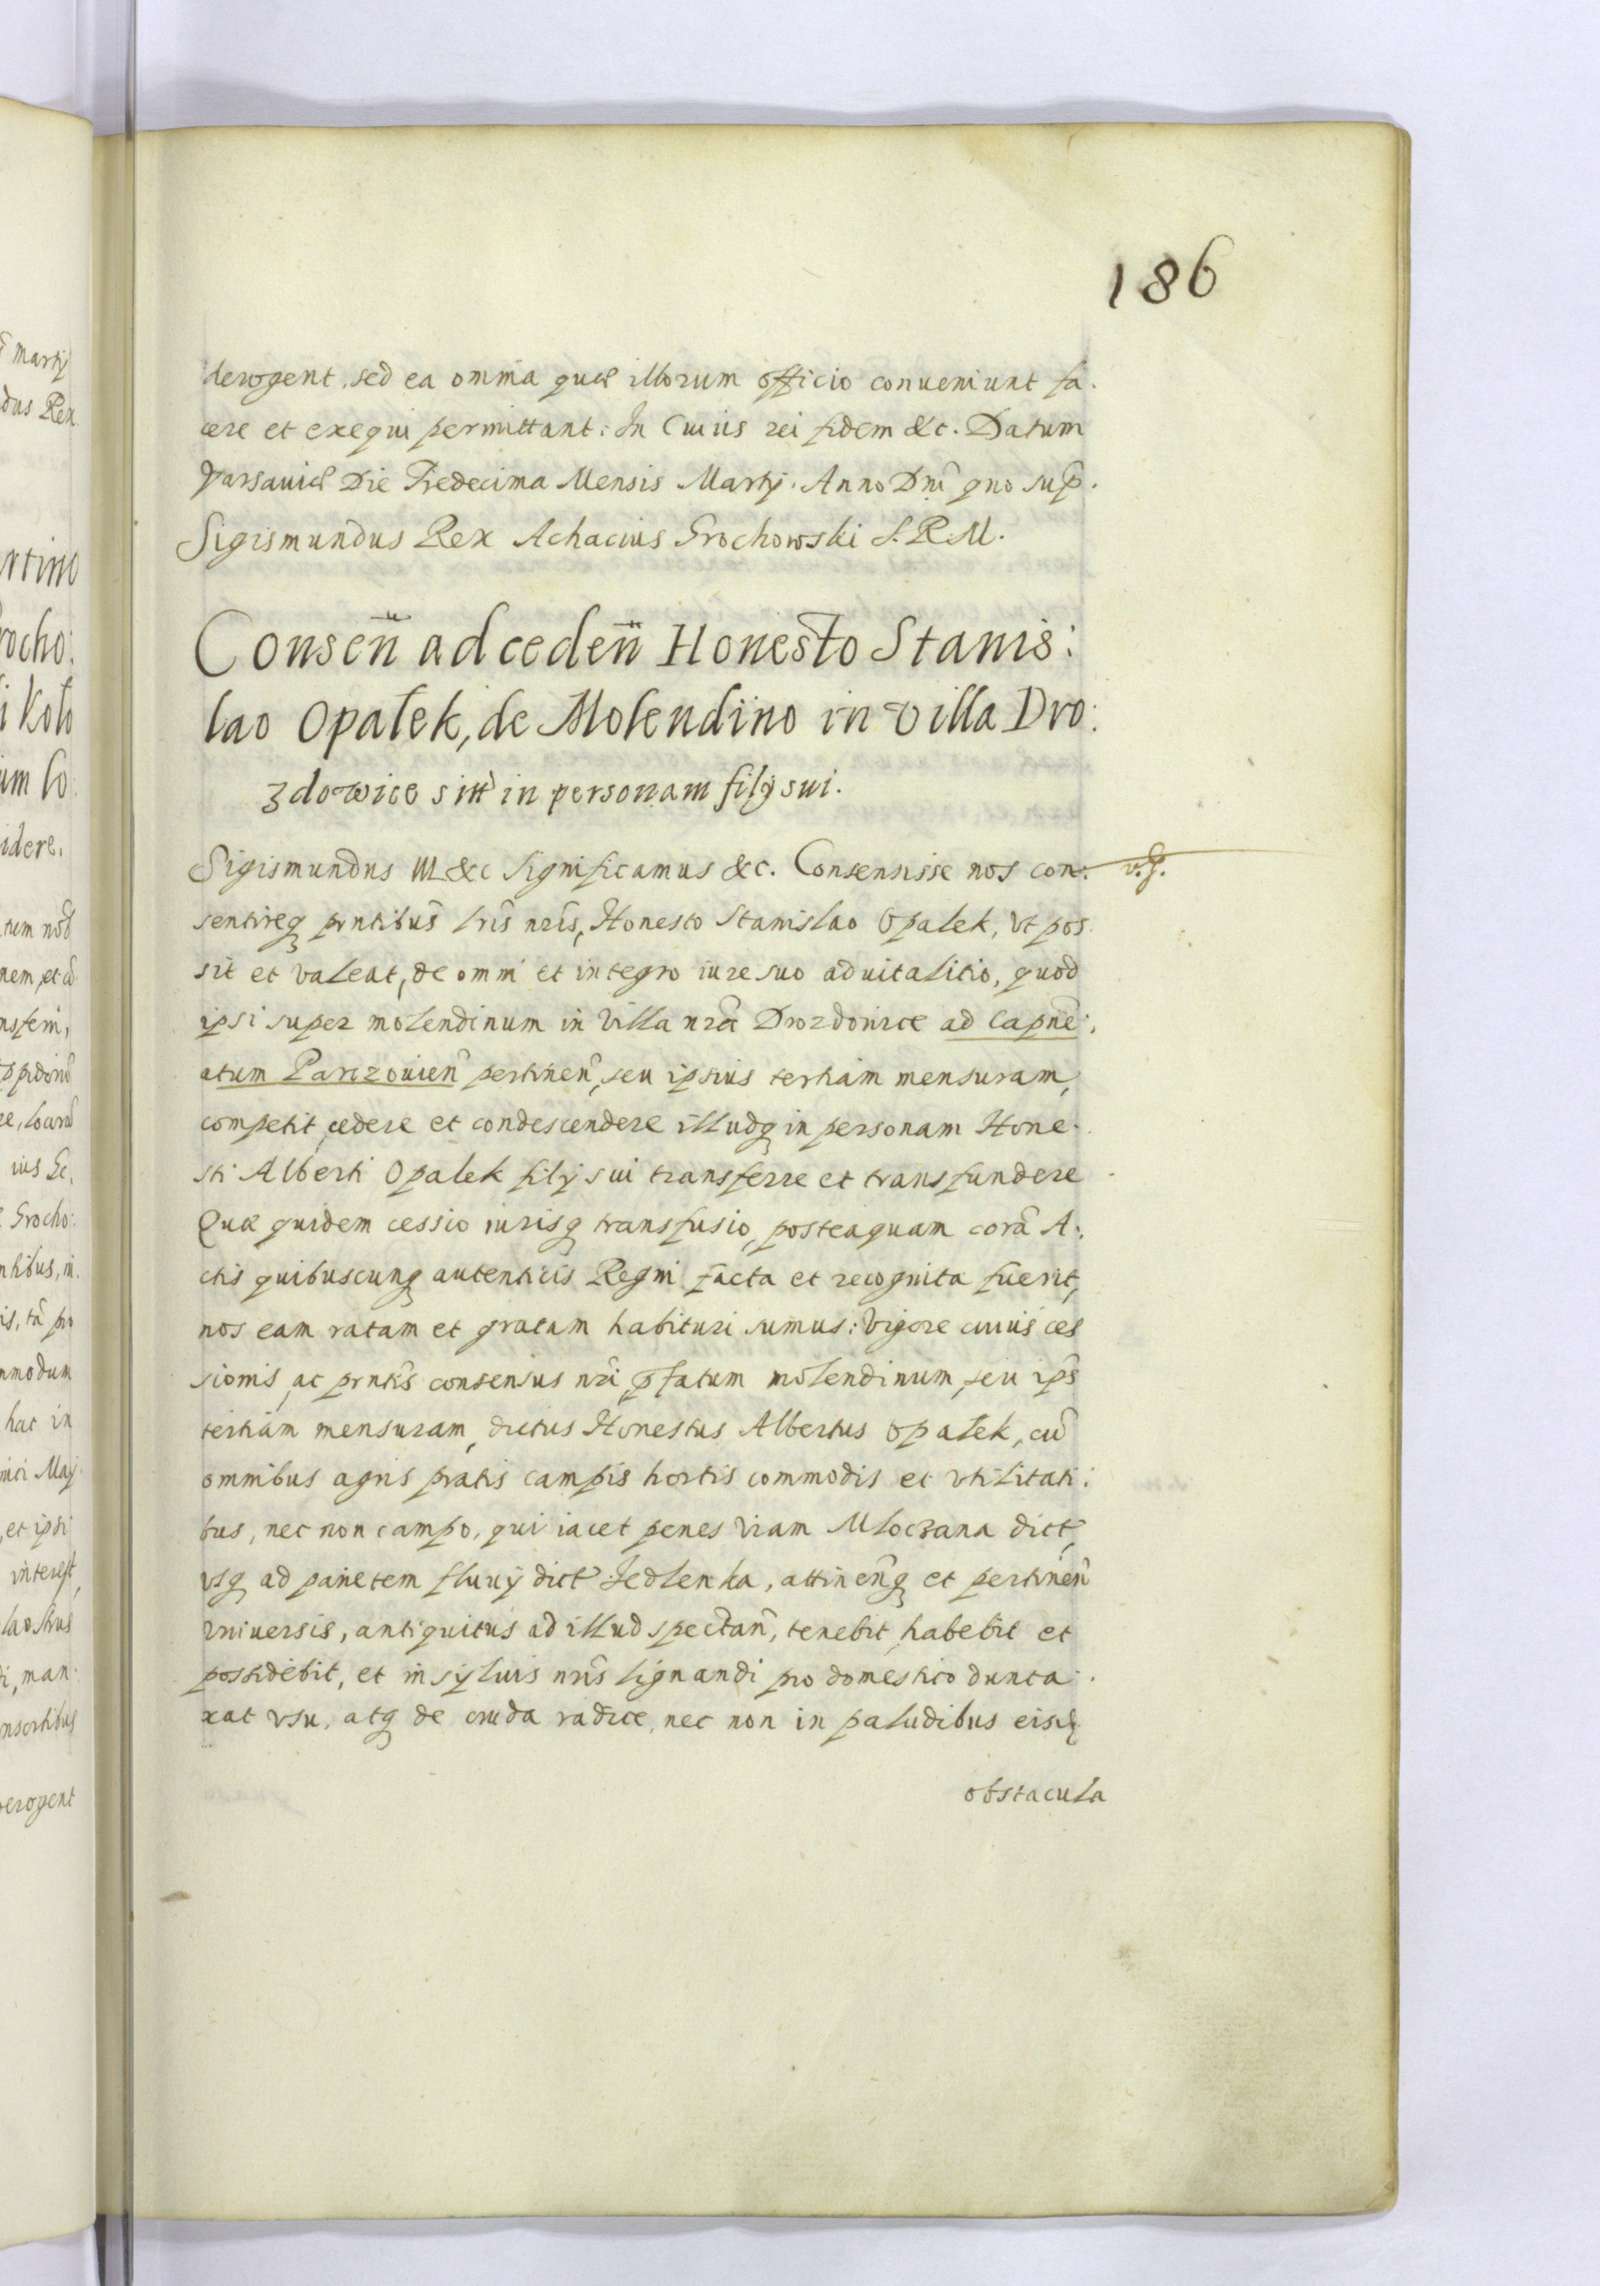 186
derogent, sed ea omnia quæ illorum officio conueniunt fa.
cere et exequi permittant: In Cuius rei fidem &c. Datum
Varsauiæ Die Tredecima Mensis Martij. Anno Dn̄i quo sup̄.
Sigismundus Rex Achacius Grochowski S. R. M.
Consen̄ ad ceden̄ Honesto Stanis:
lao Opalek, de Molendino in villa Dro:
zdowice sitt in personam filij sui.
Sigismundus III &c Significamus &c. Consensisse nos con:
v. g.
sentireq prntibus lris nris, Honesto Stanislao Opalek, vt pos
sit et valeat, de omni et integro iure suo aduitalitio, quod
ipsi super molendinum in Villa nrā Drozdowice ad Capnē:
atum Parczouien̄ pertinen̄, seu ipsius tertiam mensuram,
competit, cedere et condescendere illudq in personam Hone.
sti Alberti Opalek filij sui transferre et transfundere
Quæ quidem cessio iurisq transfusio, posteaquam corā A:
ctis quibuscunq autenticis Regni facta et recognita fuerit,
nos eam ratam et gratam habituri sumus: Vigore cuius ces
sionis, ac prntis consensus nri, p̄fatum molendinum, seu ip̄s
tertiam mensuram, dictus Honestus Albertus Opalek, cū
omnibus agris pratis campis hortis commodis et vtilitati:
bus, nec non campo, qui iacet penes viam Mloczana dict,
vsq ad parietem fluuij dict Jedlenka, attinen̄q et pertinen̄
vniuersis, antiquitus ad illud spectan̄, tenebit habebit et
possidebit, et in syluis nris lignandi pro domestico dunta.
xat vsu, atq de cruda radice, nec non in paludibus eisdq
obstacula